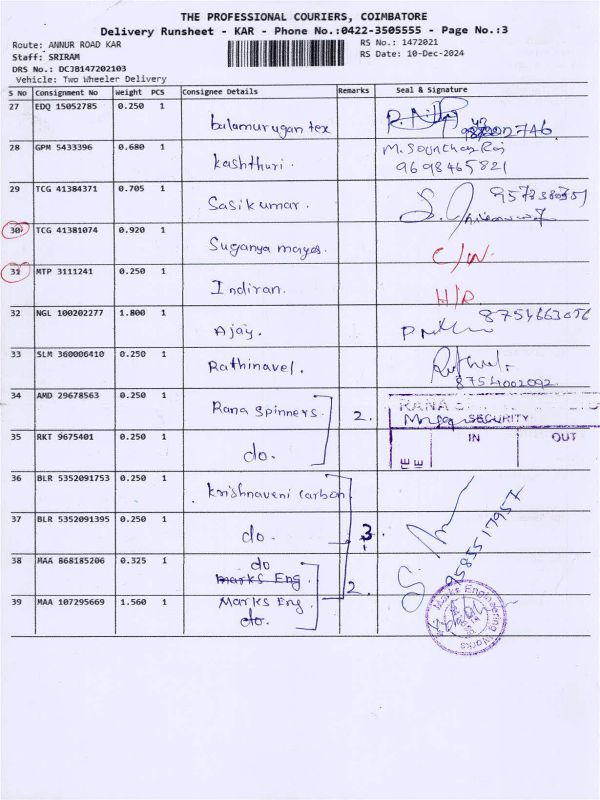 THE PROFESSIONAL COURIERS, COIMBATORE
Delivery Runsheet - KAR - Phone No.:0422-3505555 - Page No.:3
Route: ANNUR ROAD KAR
RS No.: 1472021
Staff: SRIRAM
RS Date: 10-Dec-2024
DRS No.: DCJB147202103
Vehicle: Two Wheeler Delivery
S No Consignment No Weight PCS Consignee Details Remarks Seal & Signature
27 EDQ 15052785 0.250 1 balamurugan tex
28 GPM 5433396 0.680 1 kashthuri. M. Sounthar Raj
9698465821
29 TCG 41384371 0.705 1 Sasikumar.
30 TCG 41381074 0.920 1 Suganya mayas. C/W.
31 MTP 3111241 0.250 1 Indiran. H/R
32 NGL 100202277 1.800 1 Ajay. 8754663056
33 SLM 360006410 0.250 1 Rathinavel.
8754002092
34 AMD 29678563 0.250 1 Rana spinners. 2. RANA
SECURITY
35 RKT 9675401 0.250 1 do. IN OUT
36 BLR 5352091753 0.250 1 krishnaveni carbon
37 BLR 5352091395 0.250 1 do. 3. 9585517957
38 MAA 868185206 0.325 1 do
marks Eng. 2.
39 MAA 107295669 1.560 1 Marks Eng.
do.
Marks Engineering Works